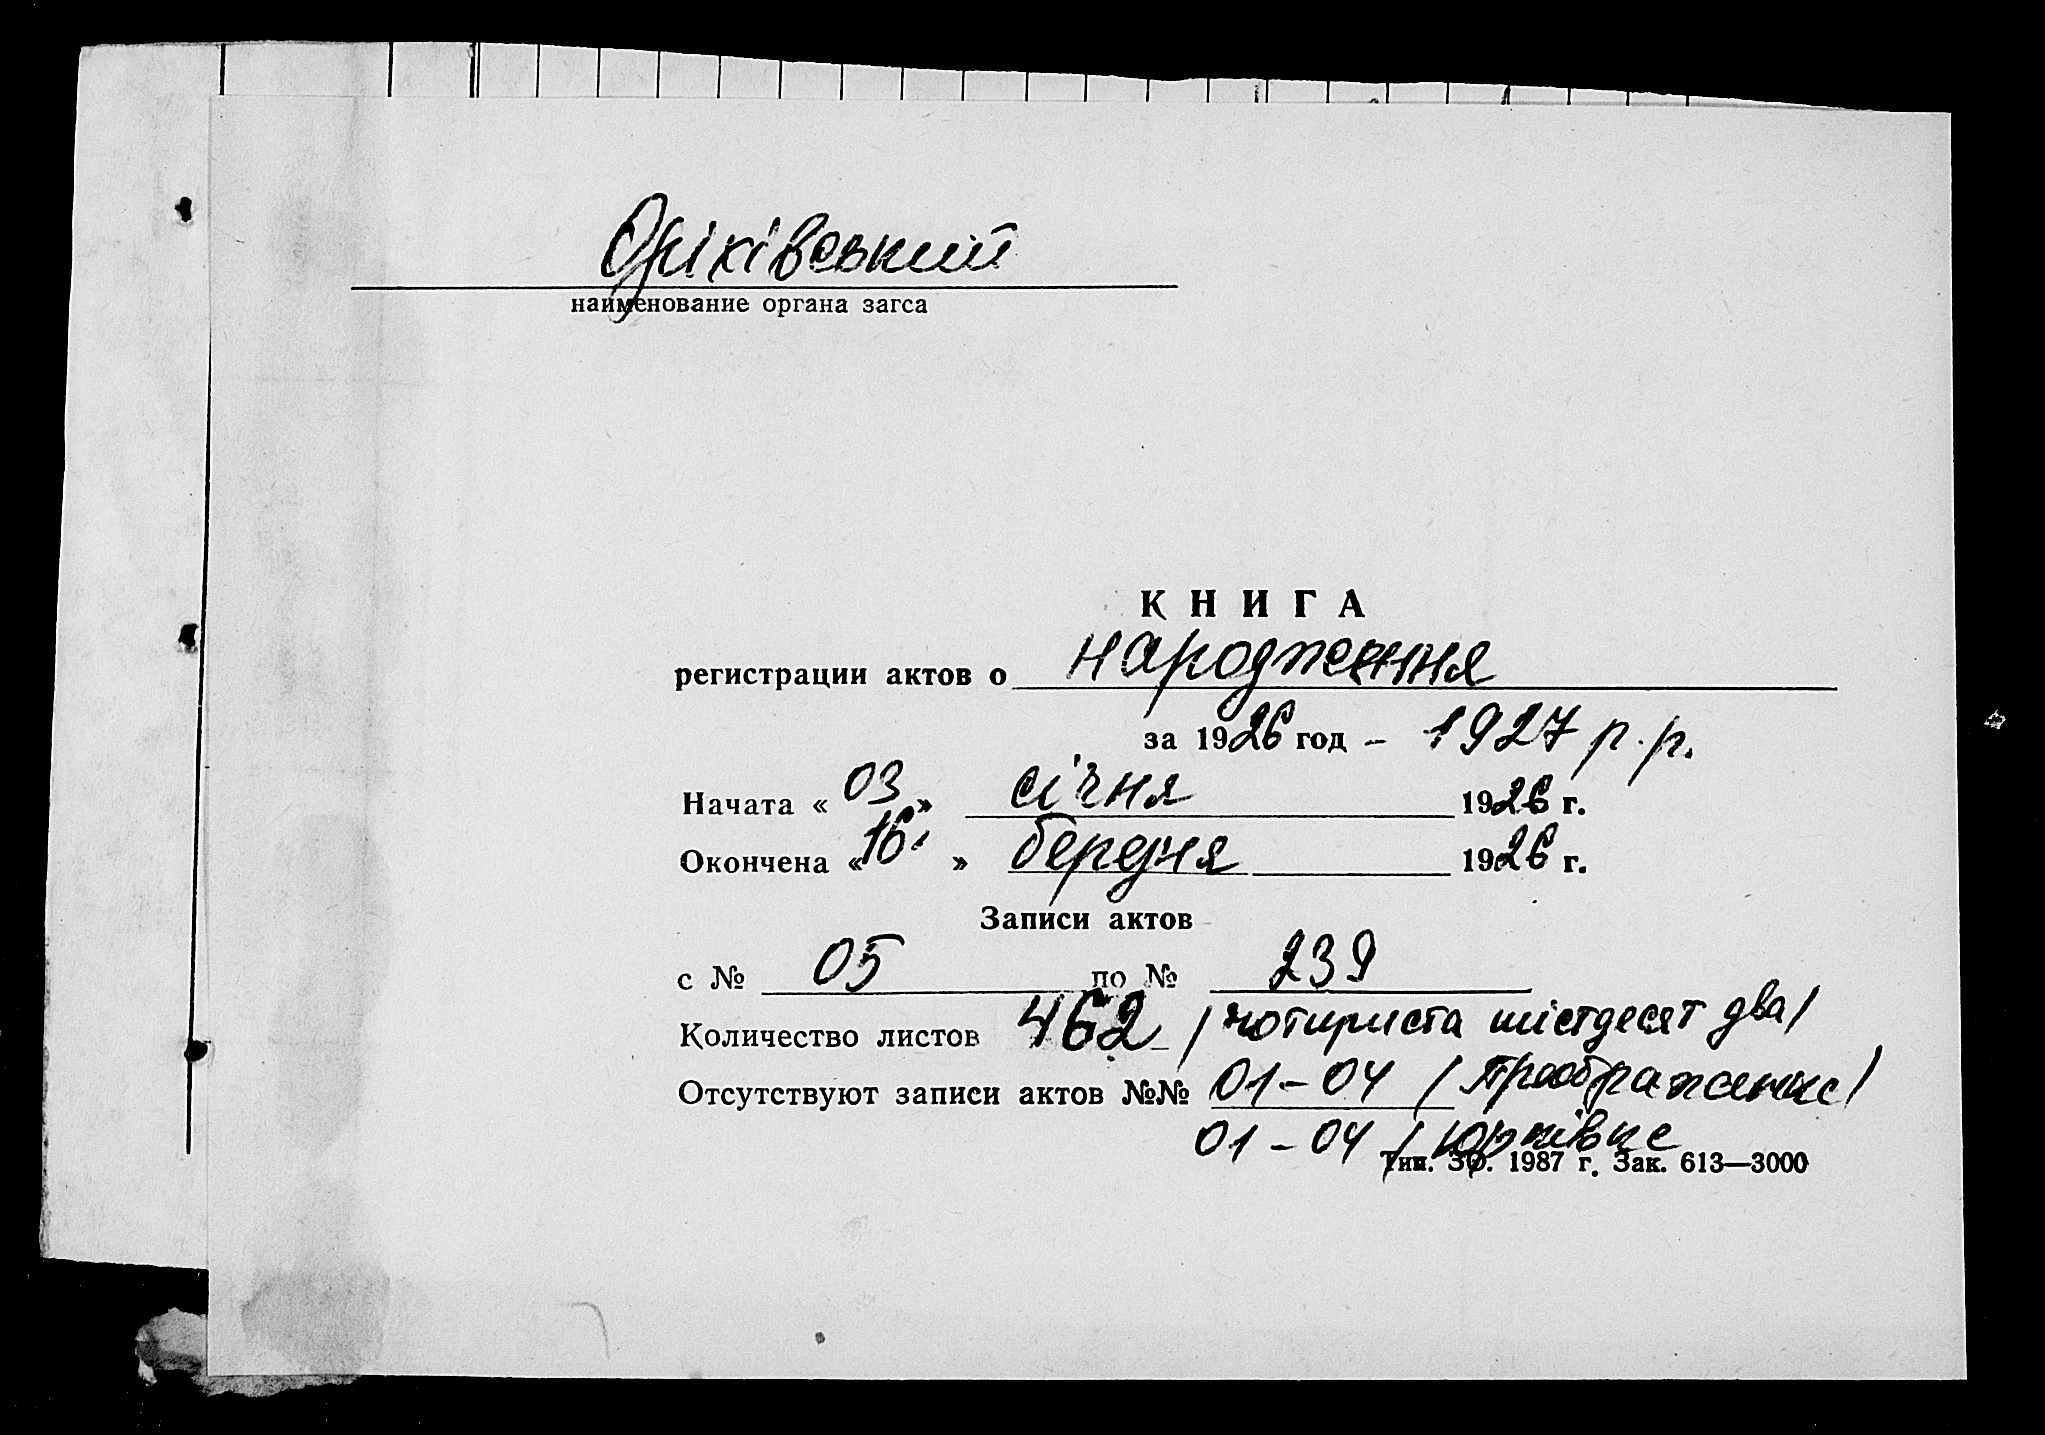 Оріхівський
наименование органа загса
КНИГА
регистрации актов о народження
за 1926 год - 1927 р.р.
Начата « 03 » січня 1926 г.
Окончена « 16 » березня 1926 г.
Записи актов
с № 05 по № 239
Количество листов 462 / чотириста шістдесят два /
Отсутствуют записи актов №№ 01-04 / Преображенис /
01-04 / Юрківце
Тип. ЗФ. 1987 г. Зак. 613—3000